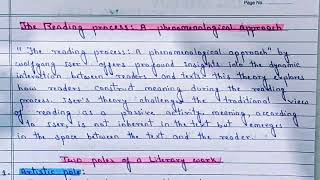 Page No.
The Reading process: A phenomenological Approach
"The reading process: A phenomenological approach" by
wolfgang Iser offers profound insights into the dynamic
interaction between readers and texts this theory explores
how readers construct meaning during the reading
process. Iser's theory challenges the traditional view
of reading as a passive activity, meaning, according
to Iser, is not inherent in the text but emerges
in the space between the text and the reader.
Two poles of a Literary work
1. Artistic pole: